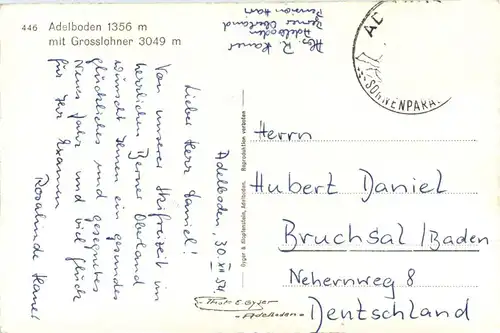 446 Adelboden 1356 m
mit Grosslohner 3049 m
Abs. R. Hauer
Pension Hari
Adelboden
Berner Oberland
AD
SONNENPARA
Adelboden, 30. XII 54
Lieber Herr Daniel!
Von unserer Skifreizeit im
herrlichen Berner Oberland
wünscht Ihnen ein gesundes
glückliches und gesegnetes
Neues Jahr und viel Glück
für Ihr Examen
Rosalinde Hauer
Gyger & Klopfenstein, Adelboden. Reproduktion verboten
Photo E. Gyger
- Adelboden -
Herrn
Hubert Daniel
Bruchsal/Baden
Nehernweg 8
Deutschland